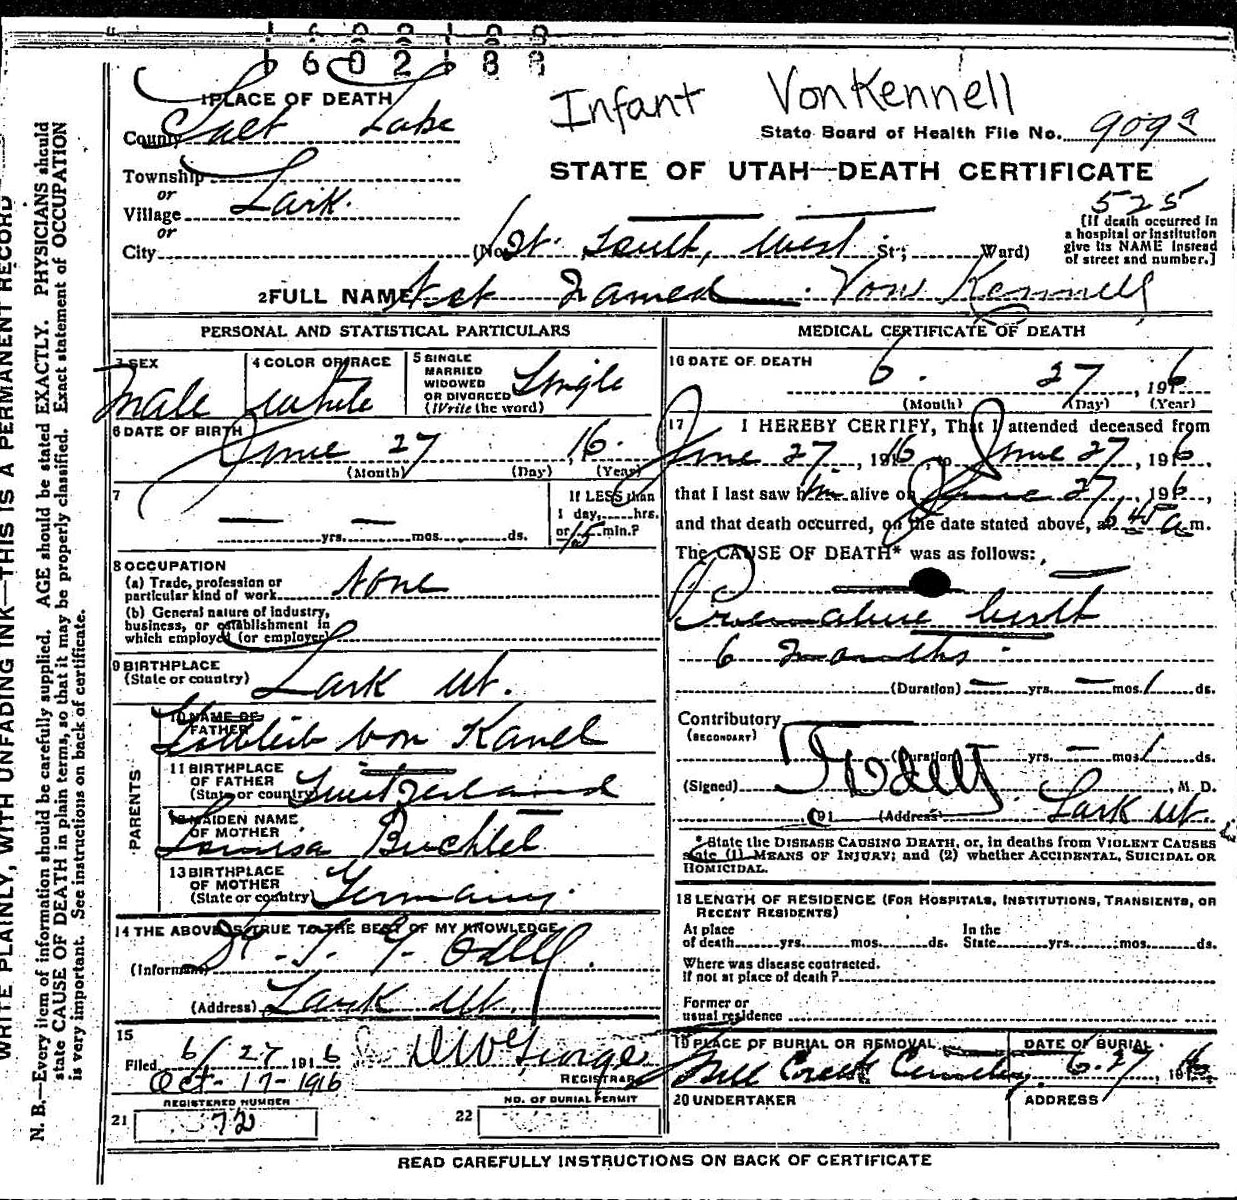 1602188
Infant VonKennell
1 PLACE OF DEATH
County Salt Lake
State Board of Health File No. 909
Township
or
Village Lark.
or
City
STATE OF UTAH—DEATH CERTIFICATE
525
[If death occurred in
a hospital or institution
give its NAME instead
of street and number.]
(No. 1st. South, West St.; Ward)
2 FULL NAME Not Named Von Kennell
PERSONAL AND STATISTICAL PARTICULARS
3 SEX Male
4 COLOR OR RACE white
5 SINGLE
MARRIED
WIDOWED
OR DIVORCED
(Write the word) Single
6 DATE OF BIRTH
June 27, 16.
(Month) (Day) (Year)
7
yrs. mos. ds.
If LESS than
1 day, hrs.
or 15 min.?
8 OCCUPATION
(a) Trade, profession or
particular kind of work None
(b) General nature of industry,
business, or establishment in
which employed (or employer)
9 BIRTHPLACE
(State or country) Lark Ut.
PARENTS
10 NAME OF
FATHER Gottleib von Kanel
11 BIRTHPLACE
OF FATHER
(State or country) Switzerland
12 MAIDEN NAME
OF MOTHER Louisa
13 BIRTHPLACE
OF MOTHER
(State or country) Germany.
14 THE ABOVE IS TRUE TO THE BEST OF MY KNOWLEDGE
(Informant) Dr. T. Odell.
(Address) Lark Ut.
15
Filed 6/27 1916 D W George
Oct-17-1916 REGISTRAR
REGISTERED NUMBER
21 72
NO. OF BURIAL PERMIT
22
MEDICAL CERTIFICATE OF DEATH
16 DATE OF DEATH
6. 27, 1916
(Month) (Day) (Year)
17 I HEREBY CERTIFY, That I attended deceased from
June 27, 1916, to June 27, 1916,
that I last saw him alive on June 27, 1916,
and that death occurred, on the date stated above, at 6 45 a m.
The CAUSE OF DEATH* was as follows:
Premature birth
6 months.
(Duration) — yrs. — mos. 1 ds.
Contributory
(SECONDARY)
(Duration) yrs. — mos. 1 ds.
(Signed) Odell, M. D.
191 (Address) Lark Ut.
*State the DISEASE CAUSING DEATH, or, in deaths from VIOLENT CAUSES
state (1) MEANS OF INJURY; and (2) whether ACCIDENTAL, SUICIDAL OR
HOMICIDAL.
18 LENGTH OF RESIDENCE (FOR HOSPITALS, INSTITUTIONS, TRANSIENTS, OR
RECENT RESIDENTS)
At place
of death yrs. mos. ds.
In the
State yrs. mos. ds.
Where was disease contracted.
if not at place of death?
Former or
usual residence
19 PLACE OF BURIAL OR REMOVAL
Mill Creek Cemetery.
DATE OF BURIAL
6-27, 1916
20 UNDERTAKER
ADDRESS
READ CAREFULLY INSTRUCTIONS ON BACK OF CERTIFICATE
WRITE PLAINLY, WITH UNFADING INK—THIS IS A PERMANENT RECORD
N. B.—Every item of information should be carefully supplied. AGE should be stated EXACTLY. PHYSICIANS should
state CAUSE OF DEATH in plain terms, so that it may be properly classified. Exact statement of OCCUPATION
is very important. See instructions on back of certificate.